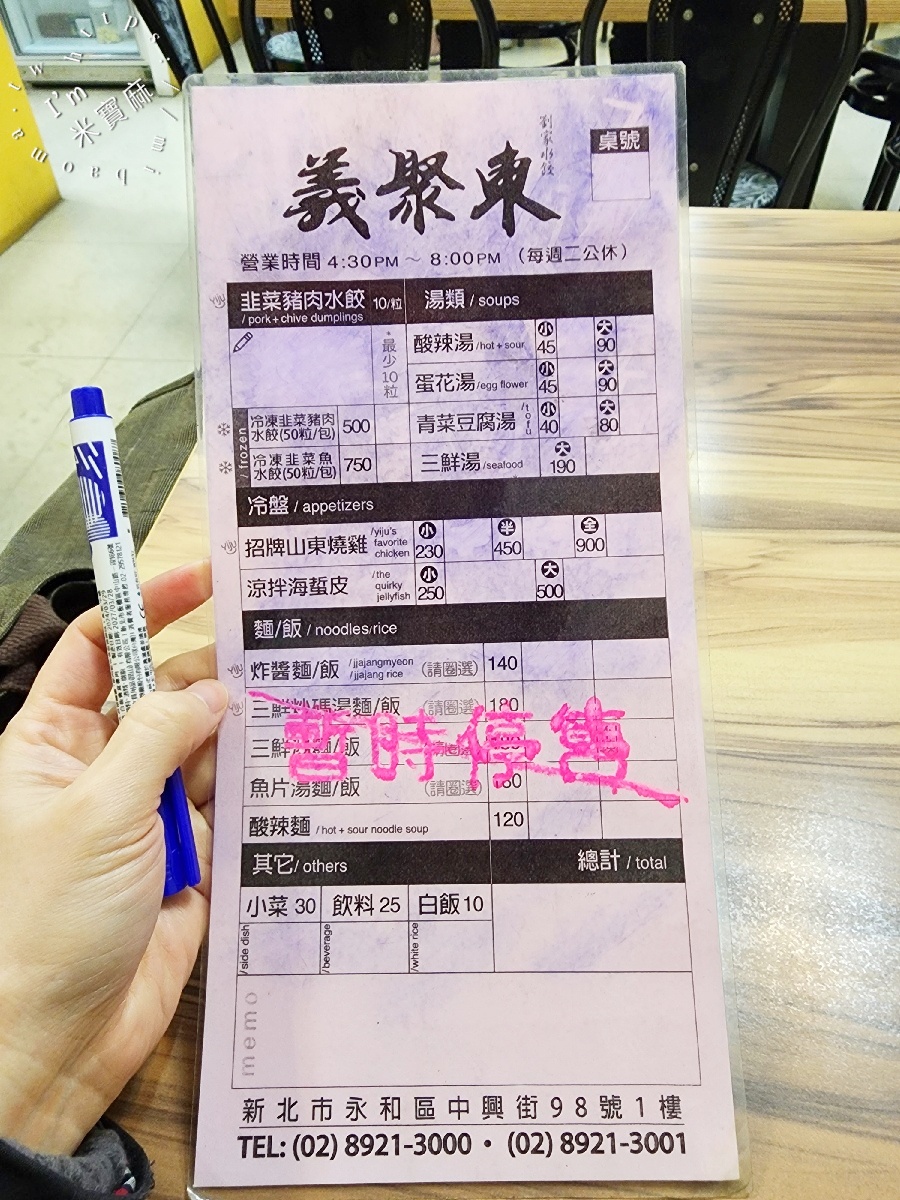 I'm 米寶麻
劉家水餃
桌號
義聚東
營業時間 4:30PM ～ 8:00PM （每週二公休）
韭菜豬肉水餃 10/粒
/ pork+chive dumplings
*最少10粒
/ frozen
冷凍韭菜豬肉水餃(50粒/包) 500
冷凍韭菜魚水餃(50粒/包) 750
湯類 / soups
酸辣湯 /hot+sour 小 45 大 90
蛋花湯 /egg flower 小 45 大 90
青菜豆腐湯 /tofu 小 40 大 80
三鮮湯 /seafood 大 190
冷盤 / appetizers
招牌山東燒雞 /yiju's favorite chicken 小 230 半 450 全 900
涼拌海蜇皮 /the quirky jellyfish 小 250 大 500
麵/飯 / noodles/rice
炸醬麵/飯 /jjajangmyeon /jjajang rice （請圈選） 140
三鮮炒碼湯麵/飯 （請圈選） 180
暫時停售
三鮮 麵/飯 （請圈選）
魚片湯麵/飯 （請圈選）
酸辣麵 / hot + sour noodle soup 120
其它/ others
總計 / total
小菜 30 飲料 25 白飯 10
/side dish /beverage /white rice
memo
新北市永和區中興街98號1樓
TEL: (02) 8921-3000 • (02) 8921-3001